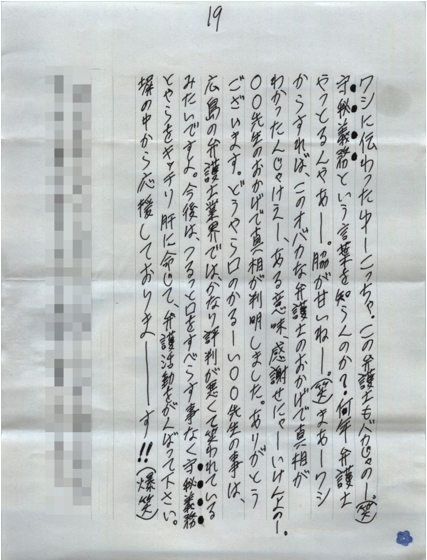 19
ワシに伝わったゆーこっちゃ。この弁護士もバカじゃのー。(笑)
守秘義務という言葉を知らんのか?何年弁護士
やっとるんやぁー。脇が甘いねー。(笑)まぁーワシ
からすれば、このオバカな弁護士のおかげで真相が
わかったんじゃけえー、ある意味、感謝せにゃーいけんよのー。
○○先生のおかげで真相が判明しました。ありがとう
ございます。どうやら口のかるーい○○先生の事は、
広島の弁護士業界ではかなり評判が悪くて笑われている
みたいですよ。今後は、つるっと口をすべらす事なく守秘義務
とやらをキッチリ肝に命じて、弁護活動をがんばって下さい。
塀の中から応援しておりまーーーす!!(爆笑)